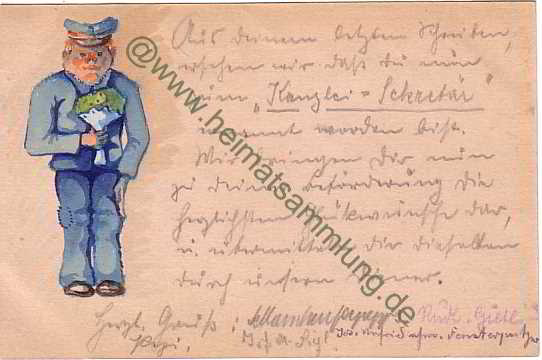 Aus deinem letzten Schreiben,
ersehen wir daß du nun
zum "Kanzlei = Sekretär"
ernannt worden bist.
Wir bringen Dir nun
zu deiner Beförderung die
herzlichsten Glückwünsche dar,
u. übermitteln dir dieselben
durch unsern Diener.
Herzl. Gruß:
Pepi.
@www.heimatsammlung.de